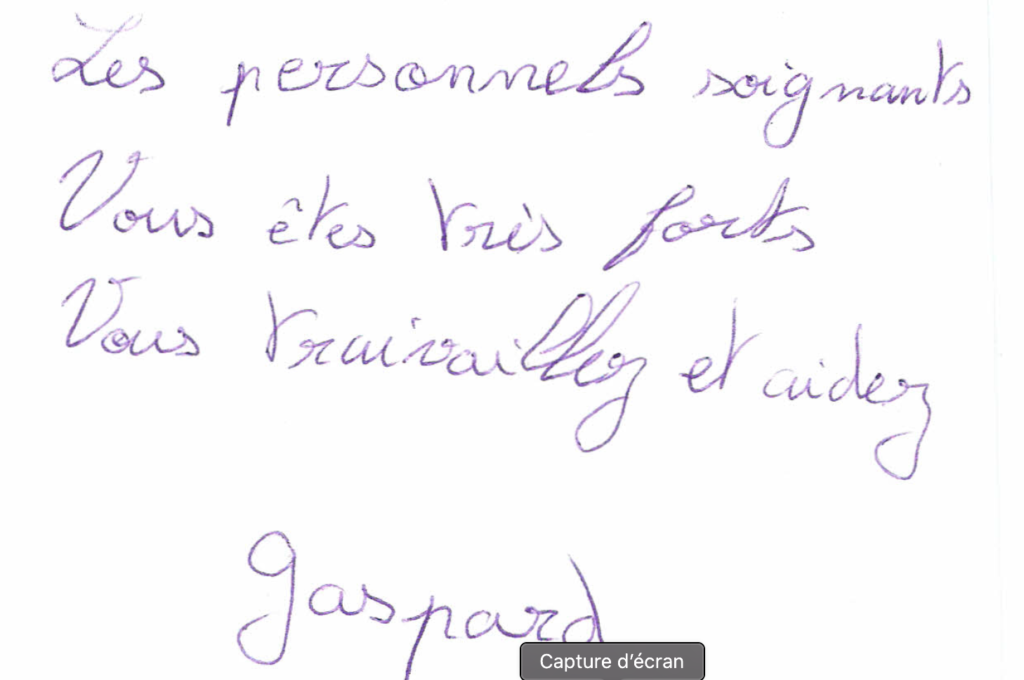 Les personnels soignants
Vous êtes très forts
Vous traivaillez et aidez
Gaspard
Capture d’écran